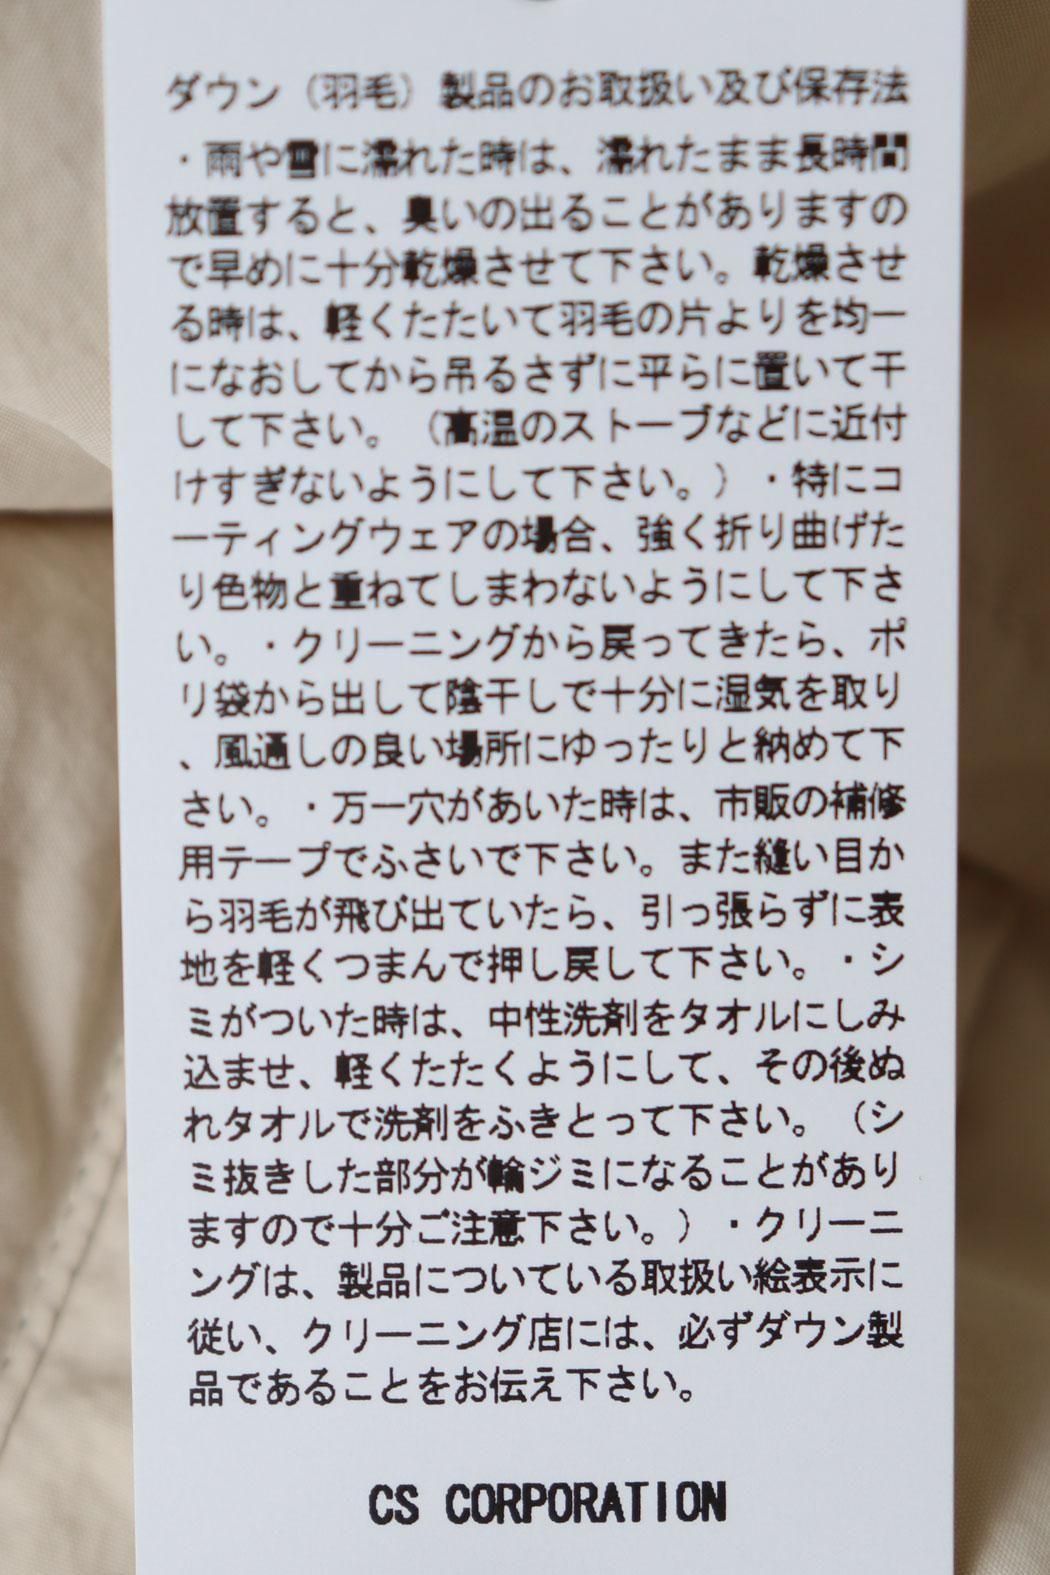 ダウン（羽毛）製品のお取扱い及び保存法
・雨や雪に濡れた時は、濡れたまま長時間
放置すると、臭いの出ることがありますの
で早めに十分乾燥させて下さい。乾燥させ
る時は、軽くたたいて羽毛の片よりを均一
になおしてから吊るさずに平らに置いて干
して下さい。（高温のストーブなどに近付
けすぎないようにして下さい。）・特にコ
ーティングウェアの場合、強く折り曲げた
り色物と重ねてしまわないようにして下さ
い。・クリーニングから戻ってきたら、ポ
リ袋から出して陰干しで十分に湿気を取り
、風通しの良い場所にゆったりと納めて下
さい。・万一穴があいた時は、市販の補修
用テープでふさいで下さい。また縫い目か
ら羽毛が飛び出ていたら、引っ張らずに表
地を軽くつまんで押し戻して下さい。・シ
ミがついた時は、中性洗剤をタオルにしみ
込ませ、軽くたたくようにして、その後ぬ
れタオルで洗剤をふきとって下さい。（シ
ミ抜きした部分が輪ジミになることがあり
ますので十分ご注意下さい。）・クリーニ
ングは、製品についている取扱い絵表示に
従い、クリーニング店には、必ずダウン製
品であることをお伝え下さい。
CS CORPORATION